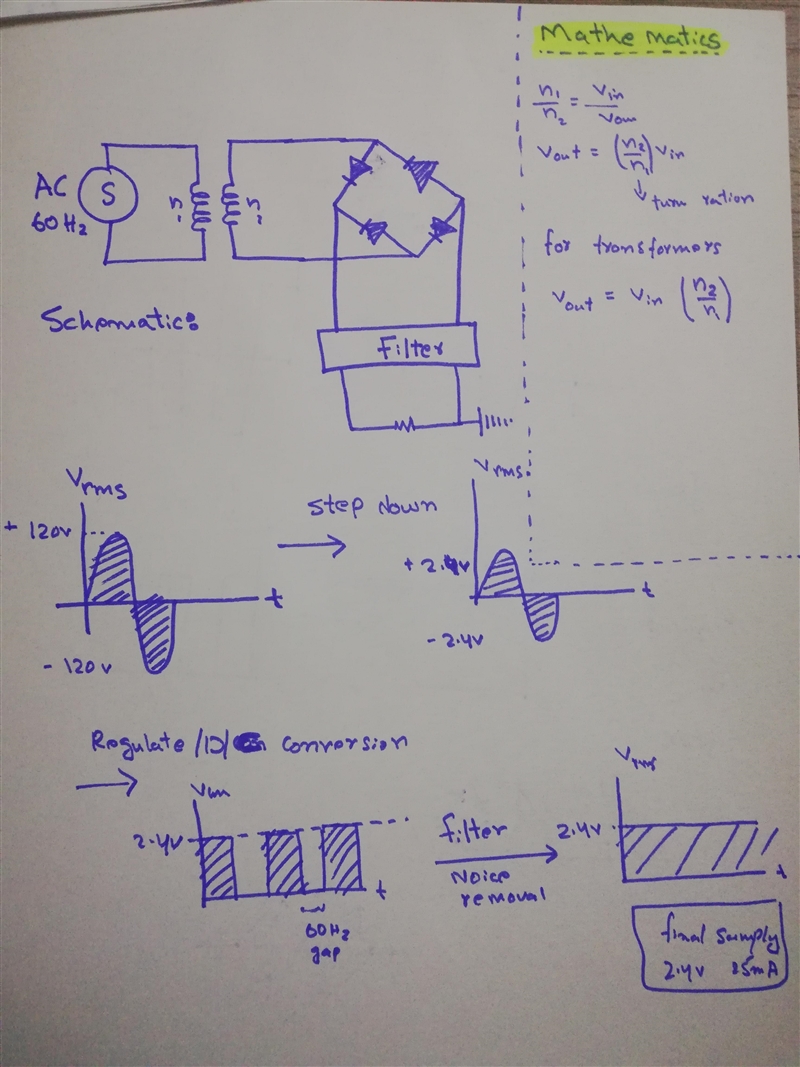 Mathematics
n1/n2 = Vin/Vou
Vout = (n2/n1) Vin
↓ turn ration
for transformors
Vout = Vin (n2/n1)
AC
60Hz
S
n1
n2
Schematic:
Filter
Vrms
+ 120v
- 120v
t
Step down
Vrms.
+ 2.4v
- 2.4v
t
Regulate /D/ conversion
2.4v
t
60Hz
gap
filter
Noice
removal
Vrms
2.4v
t
final supply
2.4v 25mA